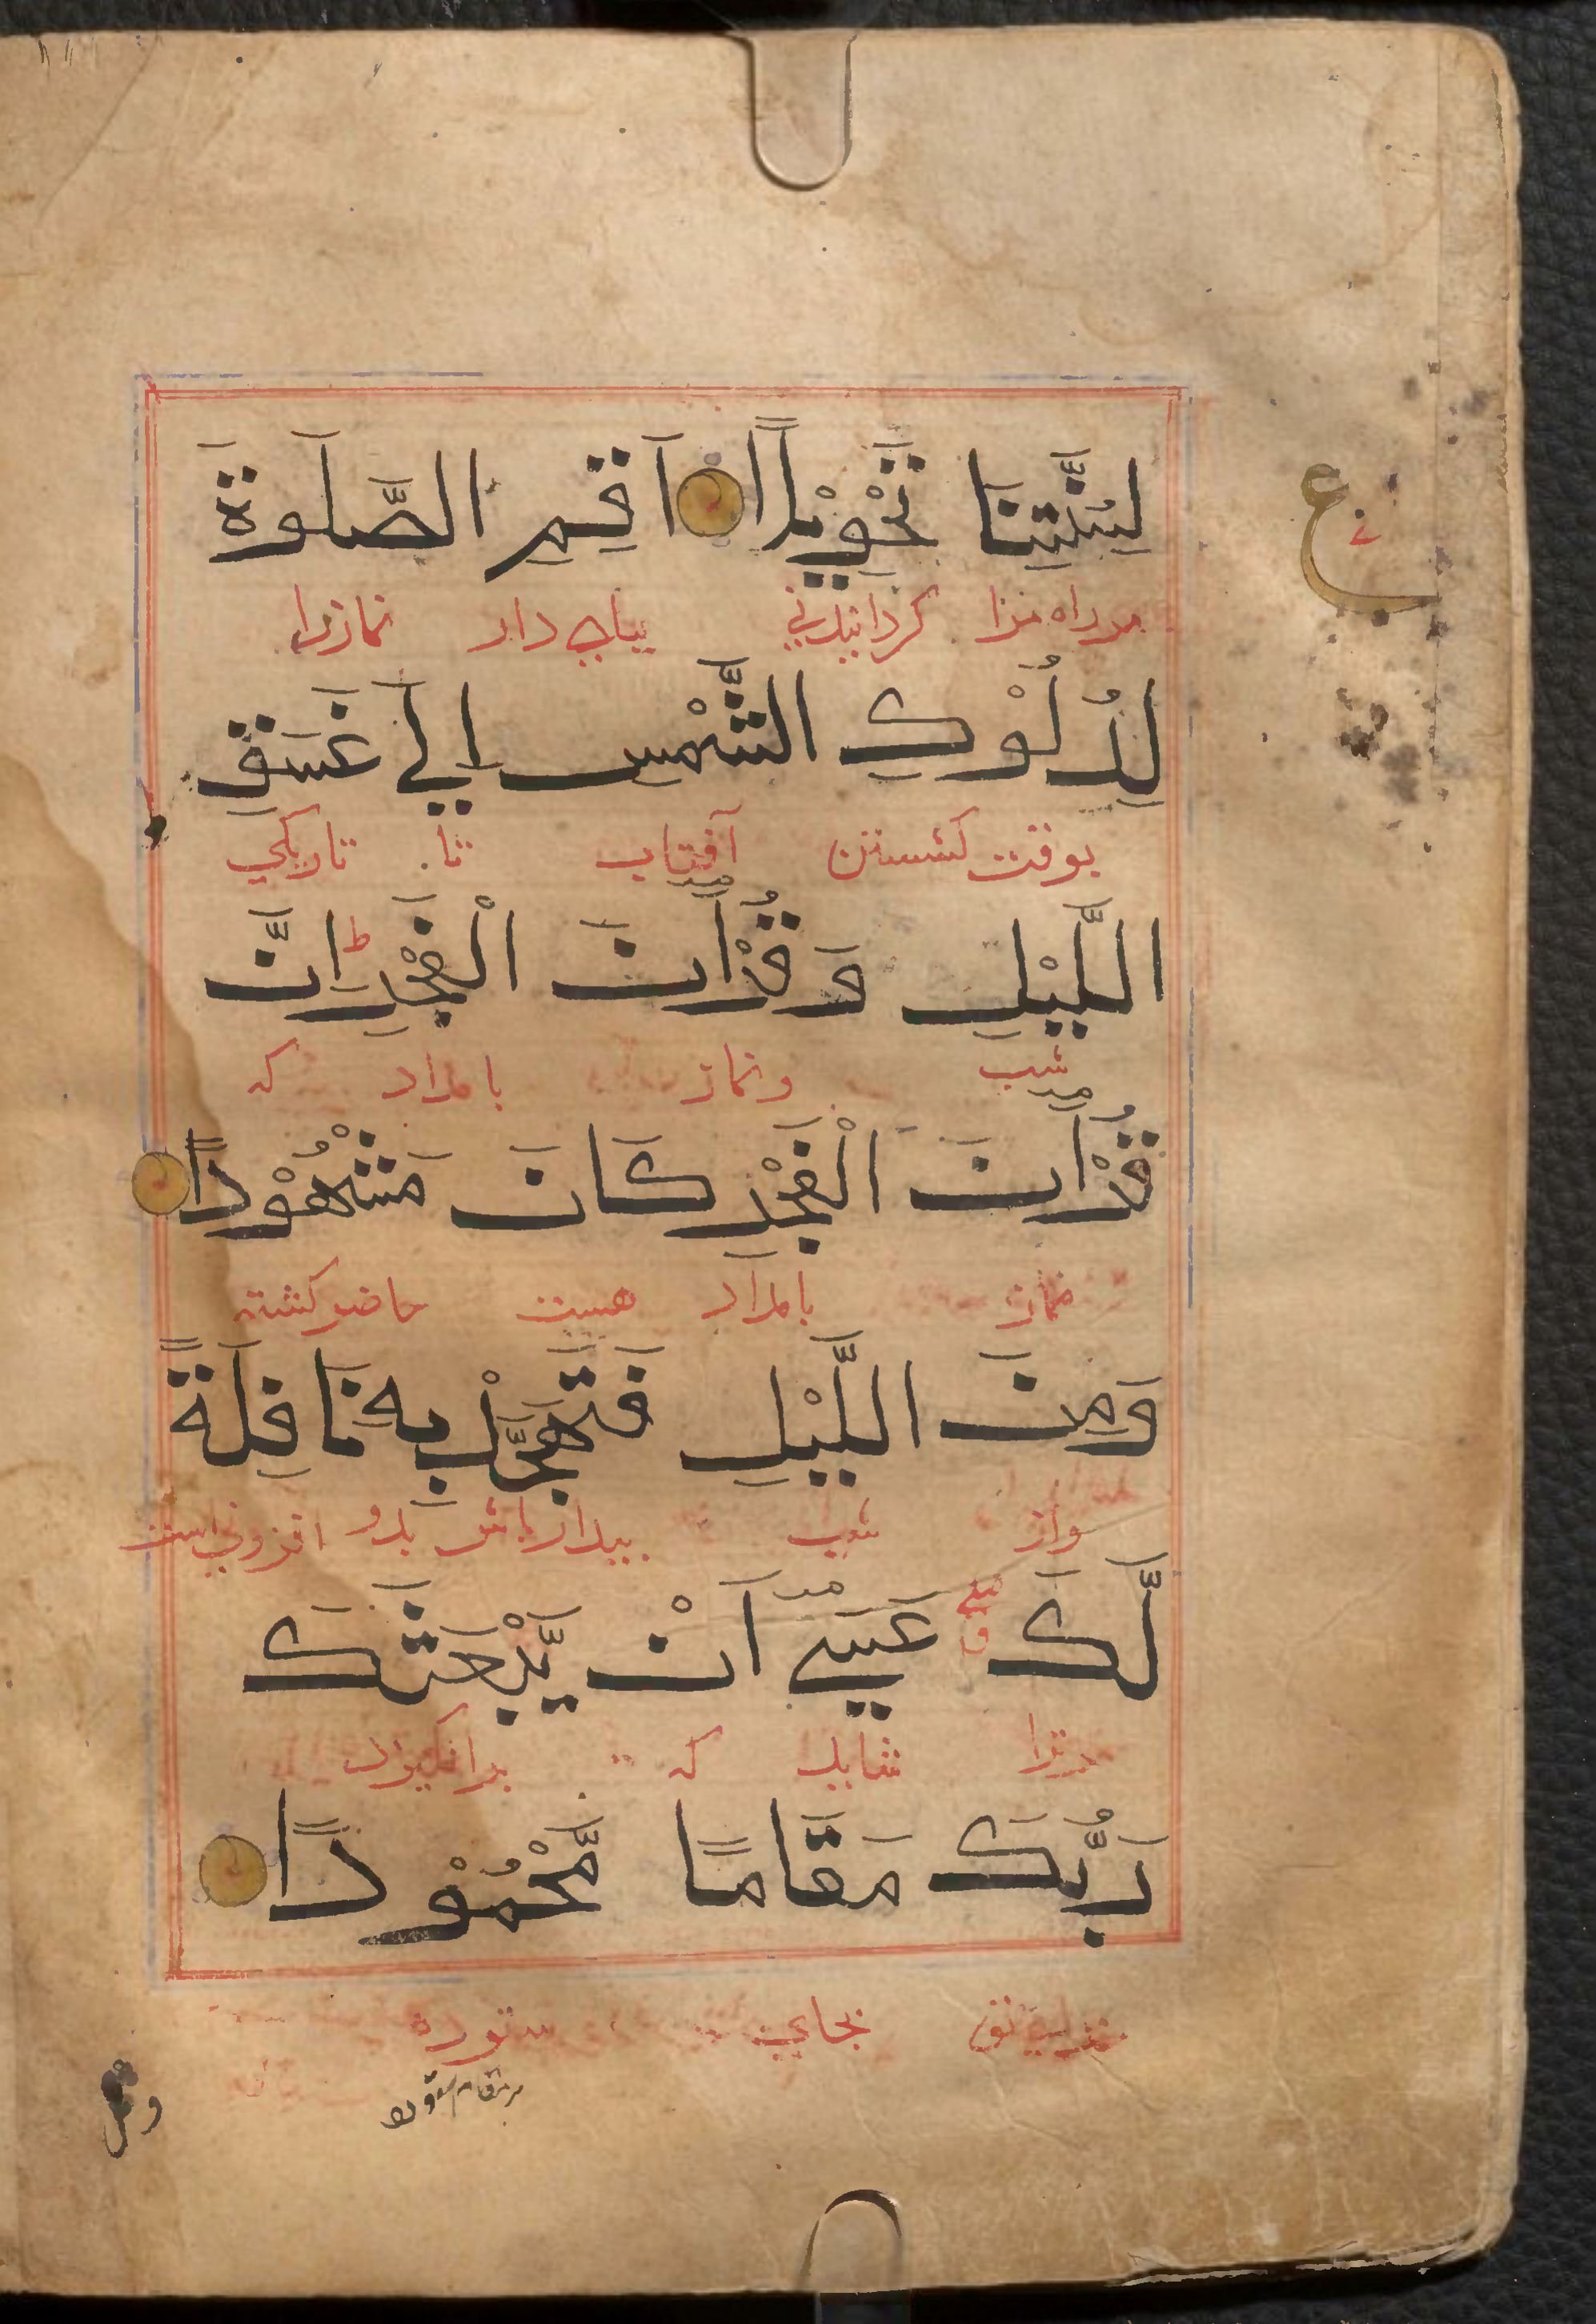 لِسُنَّتِنَا تَحْوِيْلًا اَقِمِ الصَّلٰوةَ
مر راه مرا گردانیدنی بپای دار نماز را
لِدُلُوْكِ الشَّمْسِ اِلٰي غَسَقِ
بوقت گشتن آفتاب تا تاریکی
الَّليْلِ وَ قُرْاٰنَ الْفَجْرِ ط اِنَّ
شب و نماز بامداد که
قُرْاٰنَ الْفَجْرِ كَانَ مَشْهُوْدًا
نماز بامداد هست حاضر گشته
وَمِنَ الَّليْلِ فَتَهَجَّدْ بِهٖ نَافِلَةً
و از شب بیدار باش بدو افزونی است
لَّكَ عَسٰٓي اَنْ يَّبْعَثَكَ
مرترا شاید که برانگیزد
رَبُّكَ مَقَامًا مَّحْمُوْدًا
تو بجای ستوده
ع